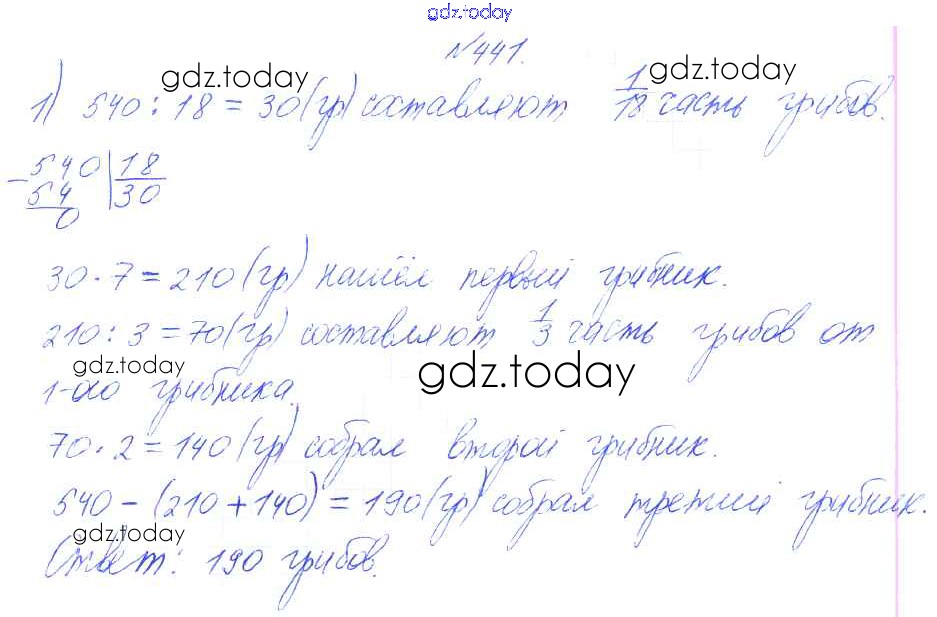 gdz.today
№441.
gdz.today gdz.today
1) 540 : 18 = 30 (гр) составляют 1/18 часть грибов.
540 | 18
- 54 | 30
0
30 · 7 = 210 (гр) нашёл первый грибник.
210 : 3 = 70 (гр) составляют 1/3 часть грибов от
gdz.today gdz.today
1-ого грибника.
70 · 2 = 140 (гр) собрал второй грибник.
540 - (210 + 140) = 190 (гр) собрал третий грибник.
gdz.today
Ответ: 190 грибов.